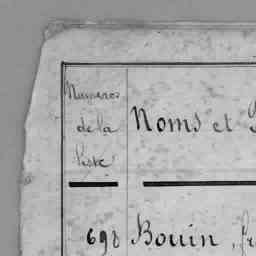 Numéros
de la
liste
Noms et
698 Bouin, fr